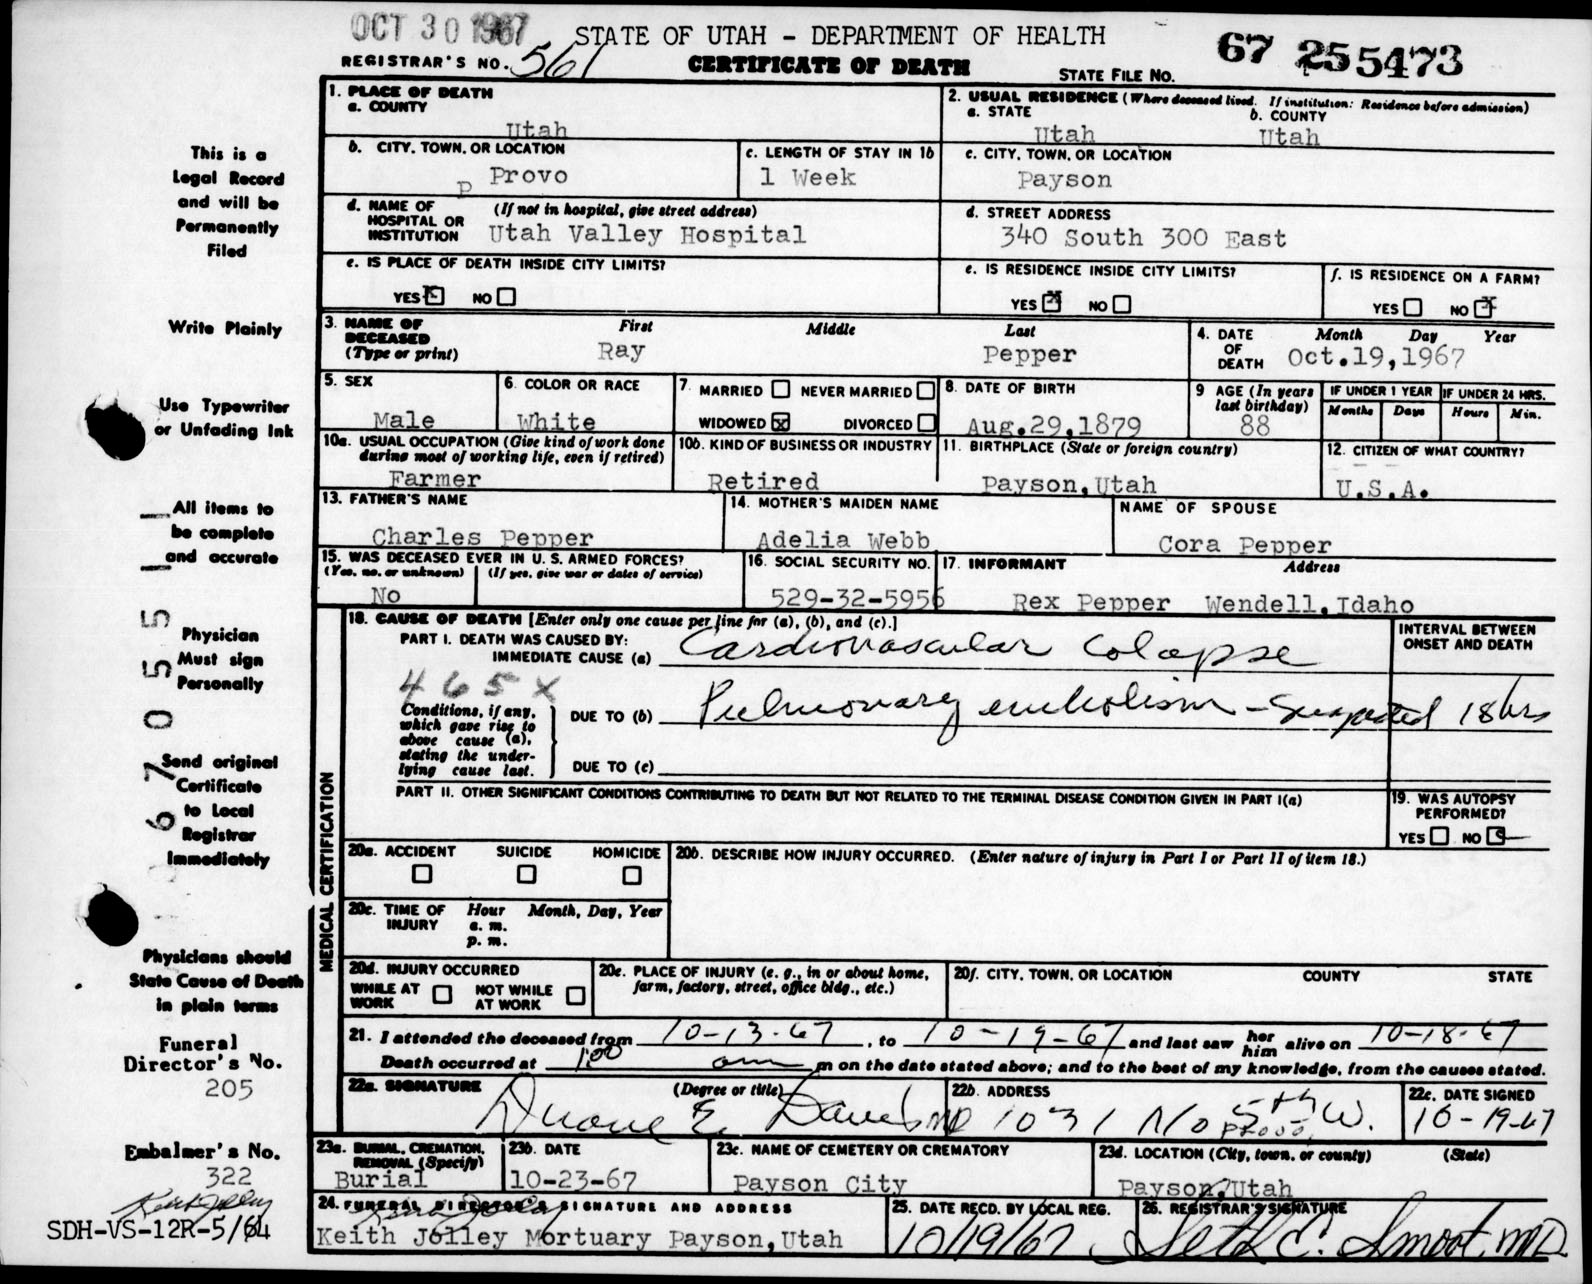 OCT 30 1967
STATE OF UTAH - DEPARTMENT OF HEALTH
REGISTRAR'S NO. 561
CERTIFICATE OF DEATH
STATE FILE NO. 67 25 5473
1. PLACE OF DEATH
a. COUNTY
Utah
2. USUAL RESIDENCE (Where deceased lived. If institution: Residence before admission)
a. STATE b. COUNTY
Utah Utah
b. CITY, TOWN, OR LOCATION
p Provo
c. LENGTH OF STAY IN 1b
1 Week
c. CITY, TOWN, OR LOCATION
Payson
d. NAME OF HOSPITAL OR INSTITUTION (If not in hospital, give street address)
Utah Valley Hospital
d. STREET ADDRESS
340 South 300 East
e. IS PLACE OF DEATH INSIDE CITY LIMITS?
YES x NO
e. IS RESIDENCE INSIDE CITY LIMITS?
YES x NO
f. IS RESIDENCE ON A FARM?
YES NO x
3. NAME OF DECEASED (Type or print)
First Middle Last
Ray Pepper
4. DATE OF DEATH Month Day Year
Oct.19,1967
5. SEX
Male
6. COLOR OR RACE
White
7. MARRIED NEVER MARRIED
WIDOWED x DIVORCED
8. DATE OF BIRTH
Aug.29,1879
9 AGE (In years last birthday)
88
IF UNDER 1 YEAR IF UNDER 24 HRS.
Months Days Hours Min.
10a. USUAL OCCUPATION (Give kind of work done during most of working life, even if retired)
Farmer
10b. KIND OF BUSINESS OR INDUSTRY
Retired
11. BIRTHPLACE (State or foreign country)
Payson,Utah
12. CITIZEN OF WHAT COUNTRY?
U.S.A.
13. FATHER'S NAME
Charles Pepper
14. MOTHER'S MAIDEN NAME
Adelia Webb
NAME OF SPOUSE
Cora Pepper
15. WAS DECEASED EVER IN U.S. ARMED FORCES?
(Yes, no, or unknown) (If yes, give war or dates of service)
No
16. SOCIAL SECURITY NO.
529-32-5956
17. INFORMANT Address
Rex Pepper Wendell,Idaho
MEDICAL CERTIFICATION
18. CAUSE OF DEATH [Enter only one cause per line for (a), (b), and (c).]
PART I. DEATH WAS CAUSED BY:
IMMEDIATE CAUSE (a) Cardiovascular Colapse
INTERVAL BETWEEN ONSET AND DEATH
465X
Conditions, if any, which gave rise to above cause (a), stating the underlying cause last.
DUE TO (b) Pulmonary embolism - Suspected 18 hrs
DUE TO (c)
PART II. OTHER SIGNIFICANT CONDITIONS CONTRIBUTING TO DEATH BUT NOT RELATED TO THE TERMINAL DISEASE CONDITION GIVEN IN PART I(a)
19. WAS AUTOPSY PERFORMED?
YES NO
20a. ACCIDENT SUICIDE HOMICIDE
20b. DESCRIBE HOW INJURY OCCURRED. (Enter nature of injury in Part I or Part II of item 18.)
20c. TIME OF INJURY Hour Month, Day, Year
a. m.
p. m.
20d. INJURY OCCURRED
WHILE AT WORK NOT WHILE AT WORK
20e. PLACE OF INJURY (e. g., in or about home, farm, factory, street, office bldg., etc.)
20f. CITY, TOWN, OR LOCATION COUNTY STATE
21. I attended the deceased from 10-13-67, to 10-19-67 and last saw her him alive on 10-18-67
Death occurred at 1:00 am m on the date stated above; and to the best of my knowledge, from the causes stated.
22a. SIGNATURE (Degree or title)
Duane E. Davis MD
22b. ADDRESS
1031 No 5th W.
Provo,
22c. DATE SIGNED
10-19-67
23a. BURIAL, CREMATION, REMOVAL (Specify)
Burial
23b. DATE
10-23-67
23c. NAME OF CEMETERY OR CREMATORY
Payson City
23d. LOCATION (City, town, or county) (State)
Payson,Utah
24. FUNERAL DIRECTOR'S SIGNATURE AND ADDRESS
Keith Jolley Mortuary Payson,Utah
25. DATE RECD. BY LOCAL REG.
10/19/67
26. REGISTRAR'S SIGNATURE
Seth C. Smoot, MD
This is a
Legal Record
and will be
Permanently
Filed
Write Plainly
Use Typewriter
or Unfading Ink
All items to
be complete
and accurate
Physician
Must sign
Personally
Send original
Certificate
to Local
Registrar
Immediately
Physicians should
State Cause of Death
in plain terms
67055
Funeral
Director's No.
205
Embalmer's No.
322
Keith Jolley
SDH-VS-12R-5/64